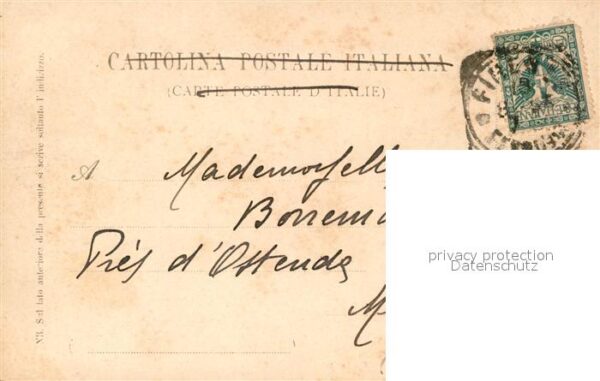 CARTOLINA POSTALE ITALIANA
(CARTE POSTALE D'ITALIE)
FIRENZE
A Mademoisell
Borrema
Près d'Ostende
M
NB. Sul lato anteriore della presente si scrive soltanto l'indirizzo.
privacy protection
Datenschutz